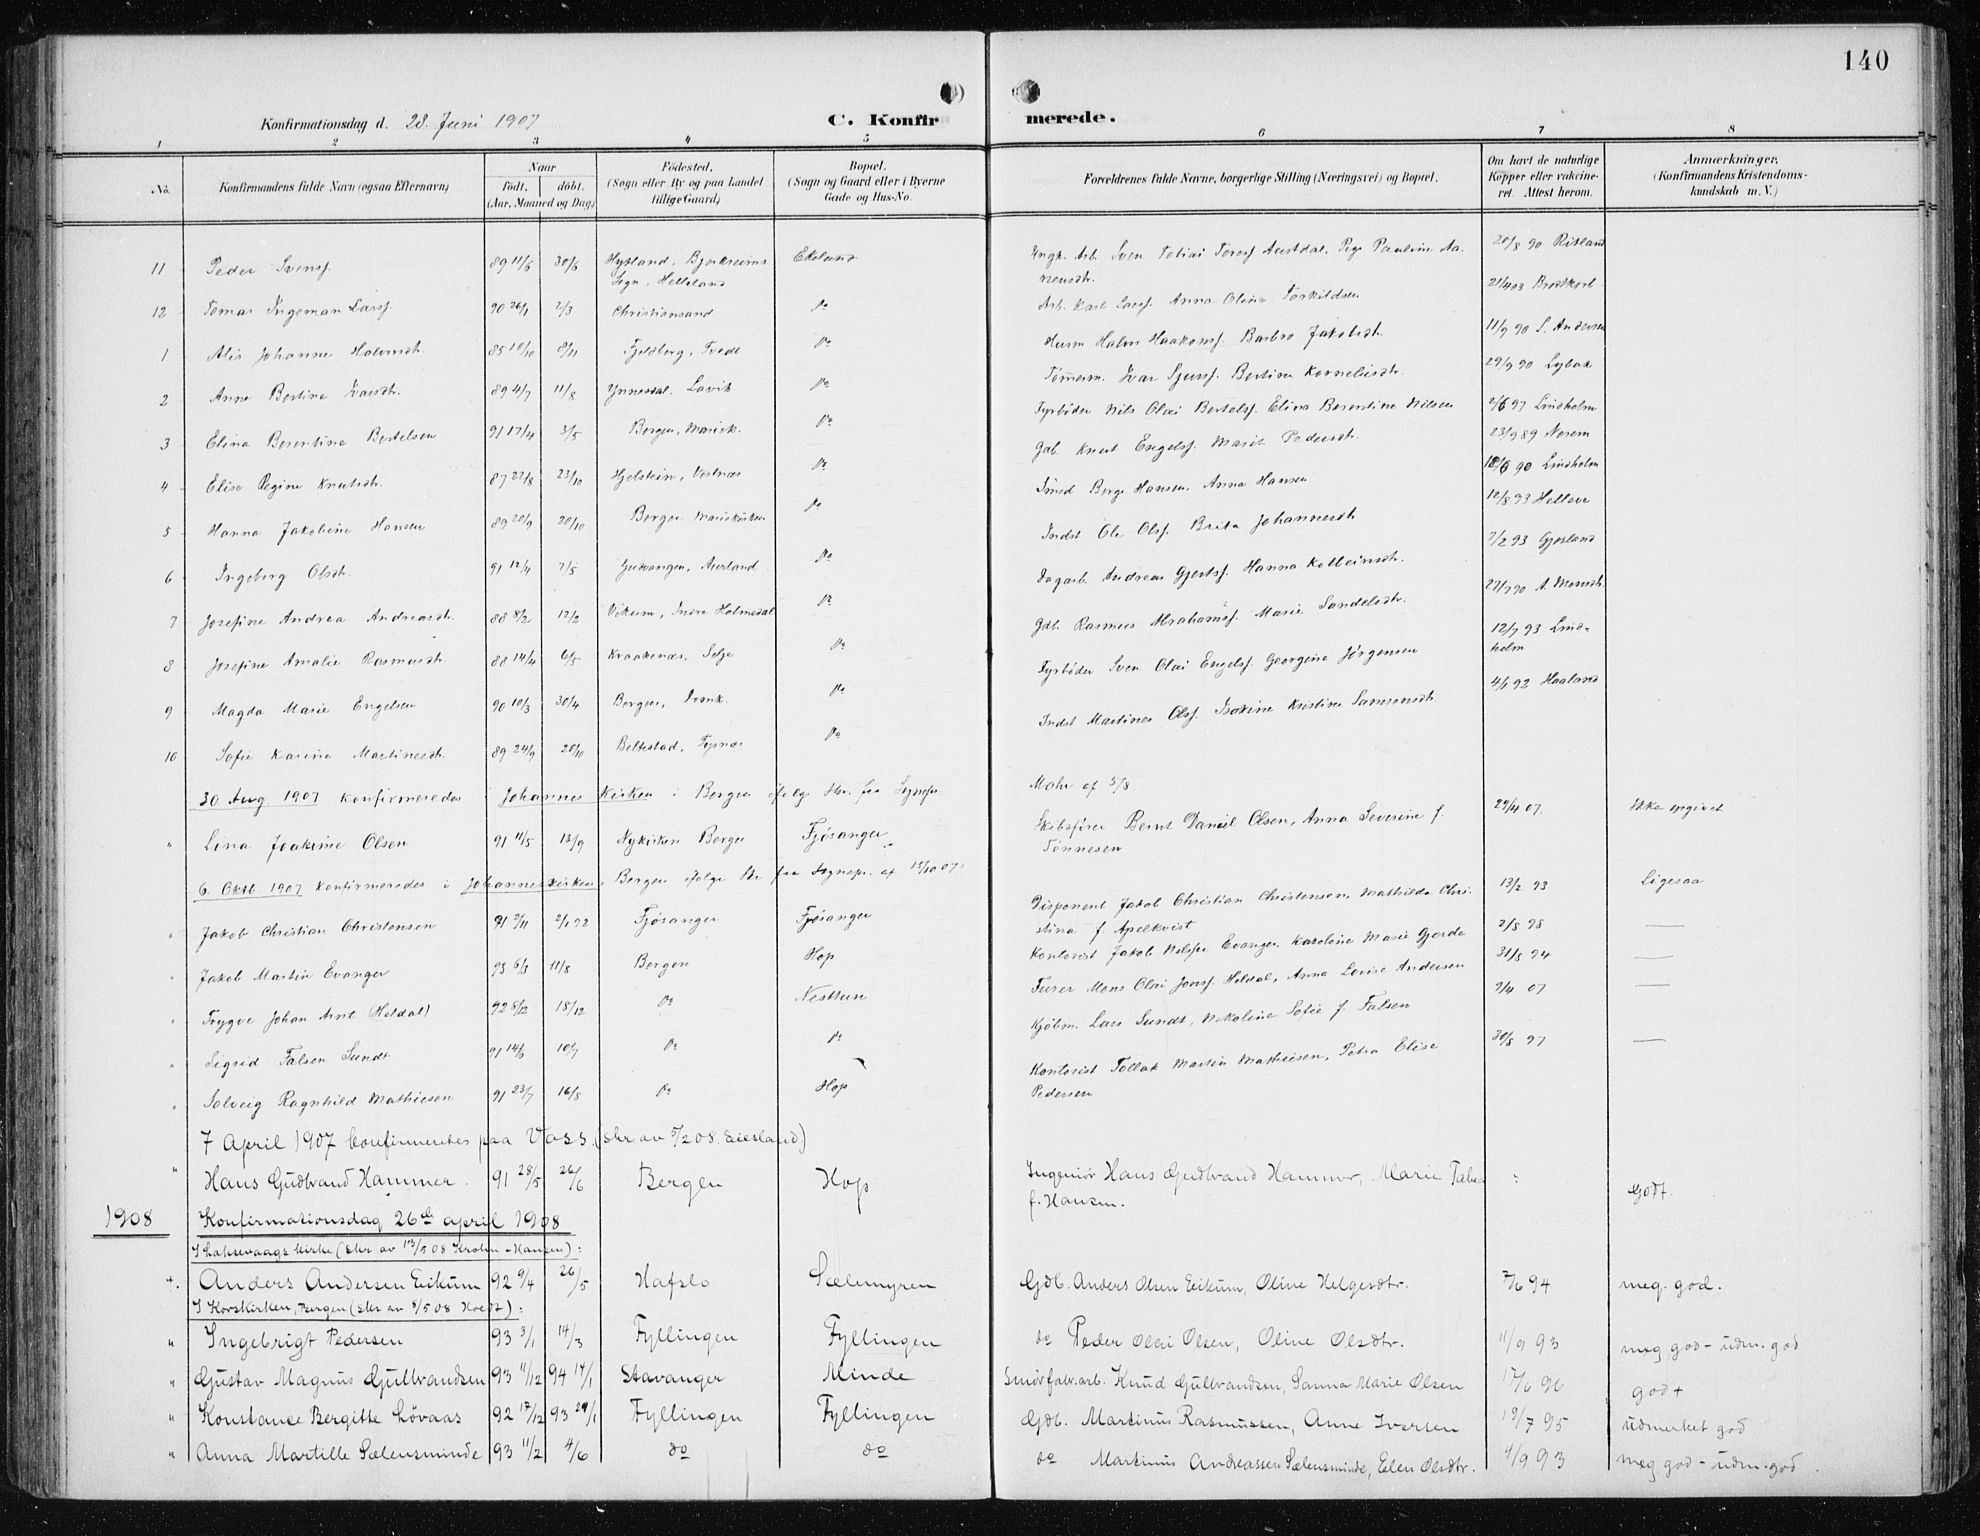 140
Konfirmationsdag d. 28. Juni 1907
C. Konfirmerede.
1 2 3 4 5 6 7 8
No.
Konfirmandens fulde Navn (ogsaa Efternavn)
Naar
födt. döbt.
(Aar, Maaned og Dag)
Födested.
(Sogn eller By og paa Landet
tillige Gaard)
Bopæl.
(Sogn og Gaard eller i Byerne
Gade og Hus-No.
Forældrenes fulde Navne, borgerlige Stilling (Næringsvei) og Bopæl.
Om havt de naturlige
Kopper eller vaccine-
ret. Attest herom.
Anmærkninger.
(Konfirmandens Kristendoms-
kundskab m. V.)
11 Peder Svensf. 89 11/6 30/6 Hytland, Bjerkreims Ekeland Ungk. Arb. Sven Tobias Toresf Austdal, Pige Pauline Aa- 20/8 90 Risland
Sogn. Helleland
nensdtr.
12 Tomas Ingeman Larsf. 90 26/1 2/3 Christiansand Do Arb. Karl Larsf. Anna Oline Torkildsen 21/4 03 Brodtkorb
1 Alis Johanne Halvorsdtr. 85 10/10 8/11 Fjeldberg, Tvedt Do Husm Halvor Haakonsf. Barbro Jakobsdtr. 11/9 90 S. Andersen
2 Anne Bertine Ivarsdtr. 89 4/7 11/8 Ynnesdal. Lavik Do Tømmerm. Ivar Sjursf. Bertine Kornelisdtr. 29/9 90
3 Elina Berentine Bertelsen 91 17/4 3/5 Bergen, Mariek. Do Fyrbøder Nils Olai Bertelsf. Elina Berentine Nilsen 2/6 97 Lindholm
4 Elise Regine Knutsdtr. 87 22/8 23/10 Hjelstein, Vestnæs Do Gdb. Knut Engelsf. Marit Pedersdtr. 23/9 89 Norem
5 Hanna Jakobine Hansen 89 20/9 20/10 Bergen Mariekirken Do Smed Berge Hansen. Anna Hansen 18/6 90 Lindholm
6 Ingeborg Olsdtr. 91 12/4 7/5 Gudvangen, Aurland Do Indst Ole Olsf. Brita Johannesdtr 12/8 93 Helleve
7 Josefine Andrea Andreasdtr. 88 8/2 12/2 Vikum, Indre Holmedal Do Dagarb. Andreas Gjertsf. Hanna Kolbeinsdtr. 7/2 93 Gjesland
8 Josefine Amalie Rasmusdtr 88 14/4 6/5 Kraakenæs, Selje Do Gdb. Rasmus Abrahamsf. Marie Sandelsdtr. 27/7 90 A. Monsdtr
9 Magda Marie Engelsen 90 10/3 30/4 Bergen, Domk. Do Fyrbøder Sven Olai Engelsf. Georgine Jørgensen 12/7 93 Lind-
holm
10 Sofie Karine Martinesdtr. 89 24/9 20/10 Beltestad, Tysnæs Do Indst Martines Olsf. Isakine Kristine Samsonsdtr. 4/1 92 Haaland
30 Aug. 1907 Konfirmeredes i Johannes Kirken i Bergen ifølg Skr. fra Sognepr. Mohr af 5/8.
" Lina Joakime Olsen 91 11/5 13/9 Nykirken Bergen Fjösanger Skibsfører Bernt Daniel Olsen, Anna Severine f. 29/4 07. Ikke opgivet
Tönnesen
6. Oktb 1907 Konfirmeredes i Johanneskirken, Bergen ifølge Skr fra Sognepr. af 15/10 07:
" Jakob Christian Christensen 91 2/11 2/1 92 Fjösanger Fjösanger Disponent Jakob Christian Christensen, Mathilde Chri- 13/2 93 Ligesaa
stina f. Apelkvist
" Jakob Martin Evanger 93 6/3 11/8 Bergen Hop Kontorist Jakob Nilsen Evanger, Karoline Marie Gjerde 2/8 98 —
" Trygve Johan Arnt (Heldal) 92 8/12 18/12 Do Nesttun Furer Mons Olai Jonsf. Heldal, Anna Lovise Andersen 31/8 94 —
" Sigrid Falsen Sundt 91 14/6 10/7 Do Do Kjøbm. Lars Sundt, Nikoline Sofie f. Falsen 2/4 07 —
" Solveig Ragnhild Mathiesen 91 23/7 16/8 Do Hop Kontorist Tollak Martin Mathiesen, Petra Elise 30/8 97 —
Pedersen
7 April 1907 konfirmertes paa Voss. (skr. av 5/2 08. Eiesland.)
" Hans Gudbrand Hammer. 91 28/5 26/6 Bergen Hop Ingeniör Hans Gudbrand Hammer, Marie " Godt.
f. Hansen.
1908 Konfirmationsdag 26de april 1908
I Laksevaags kirke (skr av 13/5 08 Krohn-Hansen):
+. Anders Andersen Eikum 92 9/4 26/5 Hafslo Sælemyren Gdb. Anders Olsen Eikum, Oline Helgesdtr. 7/6 94 meg. god.
I Korskirken, Bergen (skr av 8/5 08 Hoedt):
" Ingebrigt Pedersen 93 3/1 14/3 Fyllingen Fyllingen do Peder Olai Olsen, Oline Olsdtr. 11/9 93 meg god - udm. god
" Gustav Magnus Gulbrandsen 93 11/12 94 14/1 Stavanger Minde Smörfabr.arb. Knud Gulbrandsen, Sanna Marie Olsen 17/6 96 godt
" Konstance Bergitte Lövaas 92 17/12 93 29/1 Fyllingen Fyllingen Gdb. Martinus Rasmussen, Anne Iversen 19/7 95 udmerket god
" Anna Martille Sælensminde 93 11/2 4/6 do do do Martinus Andreassen Sælensminde, Elen Olsdtr. 11/9 93 meg god - udm. god.